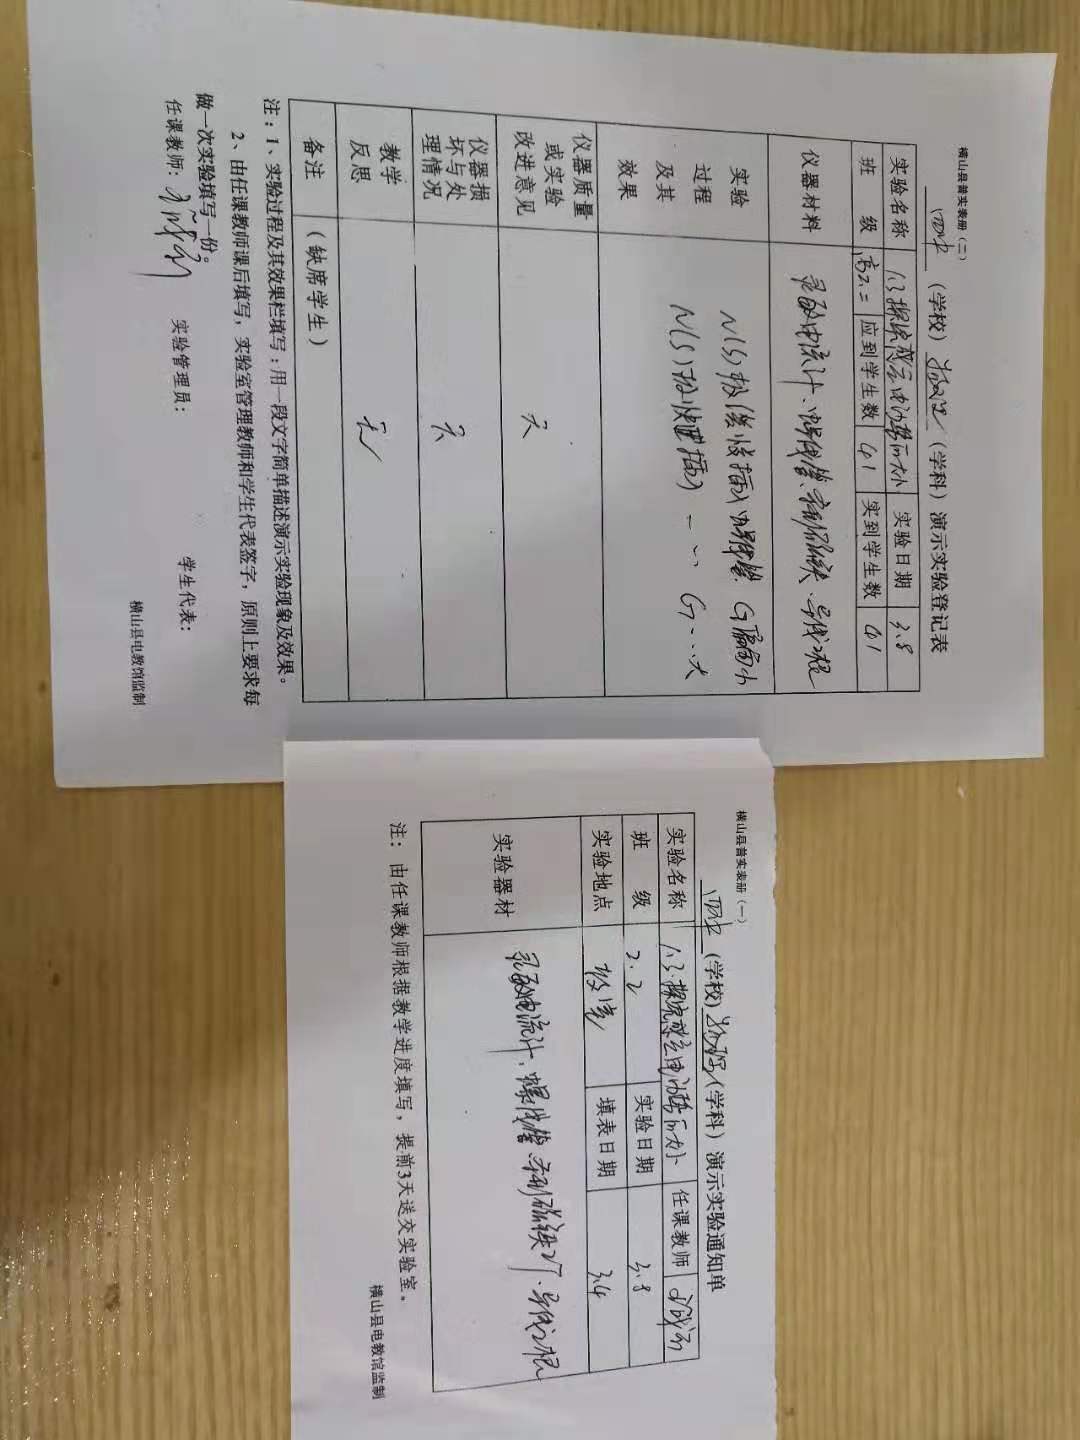 横山县普实表册（二）
（学校）物理（学科）演示实验登记表
实验名称 1.3探究感应电动势的大小 实验日期 3.8
班 级 高二.二 应到学生数 41 实到学生数 41
仪器材料 灵敏电流计、螺线管、条形磁铁、导线2根
实验
过程
及其
效果
N(S)极缓慢插入螺线管 G偏角小
N(S)极快速插入 G 大
仪器质量
或实验
改进意见
无
仪器损
坏与处
理情况
无
教学
反思
无
备注 （缺席学生）
注：1、实验过程及其效果栏填写：用一段文字简单描述演示实验现象及效果。
2、由任课教师课后填写，实验室管理教师和学生代表签字，原则上要求每
做一次实验填写一份。
任课教师： 实验管理员： 学生代表：
横山县电教馆监制
横山县普实表册（一）
（学校）物理（学科）演示实验通知单
实验名称 1.3.探究感应电动势的大小 任课教师
班 级 2.2 实验日期 3.8
实验地点 教室 填表日期 3.4
实验器材 灵敏电流计、螺线管、条形磁铁2个、导线2根
注： 由任课教师根据教学进度填写，提前3天送交实验室。
横山县电教馆监制